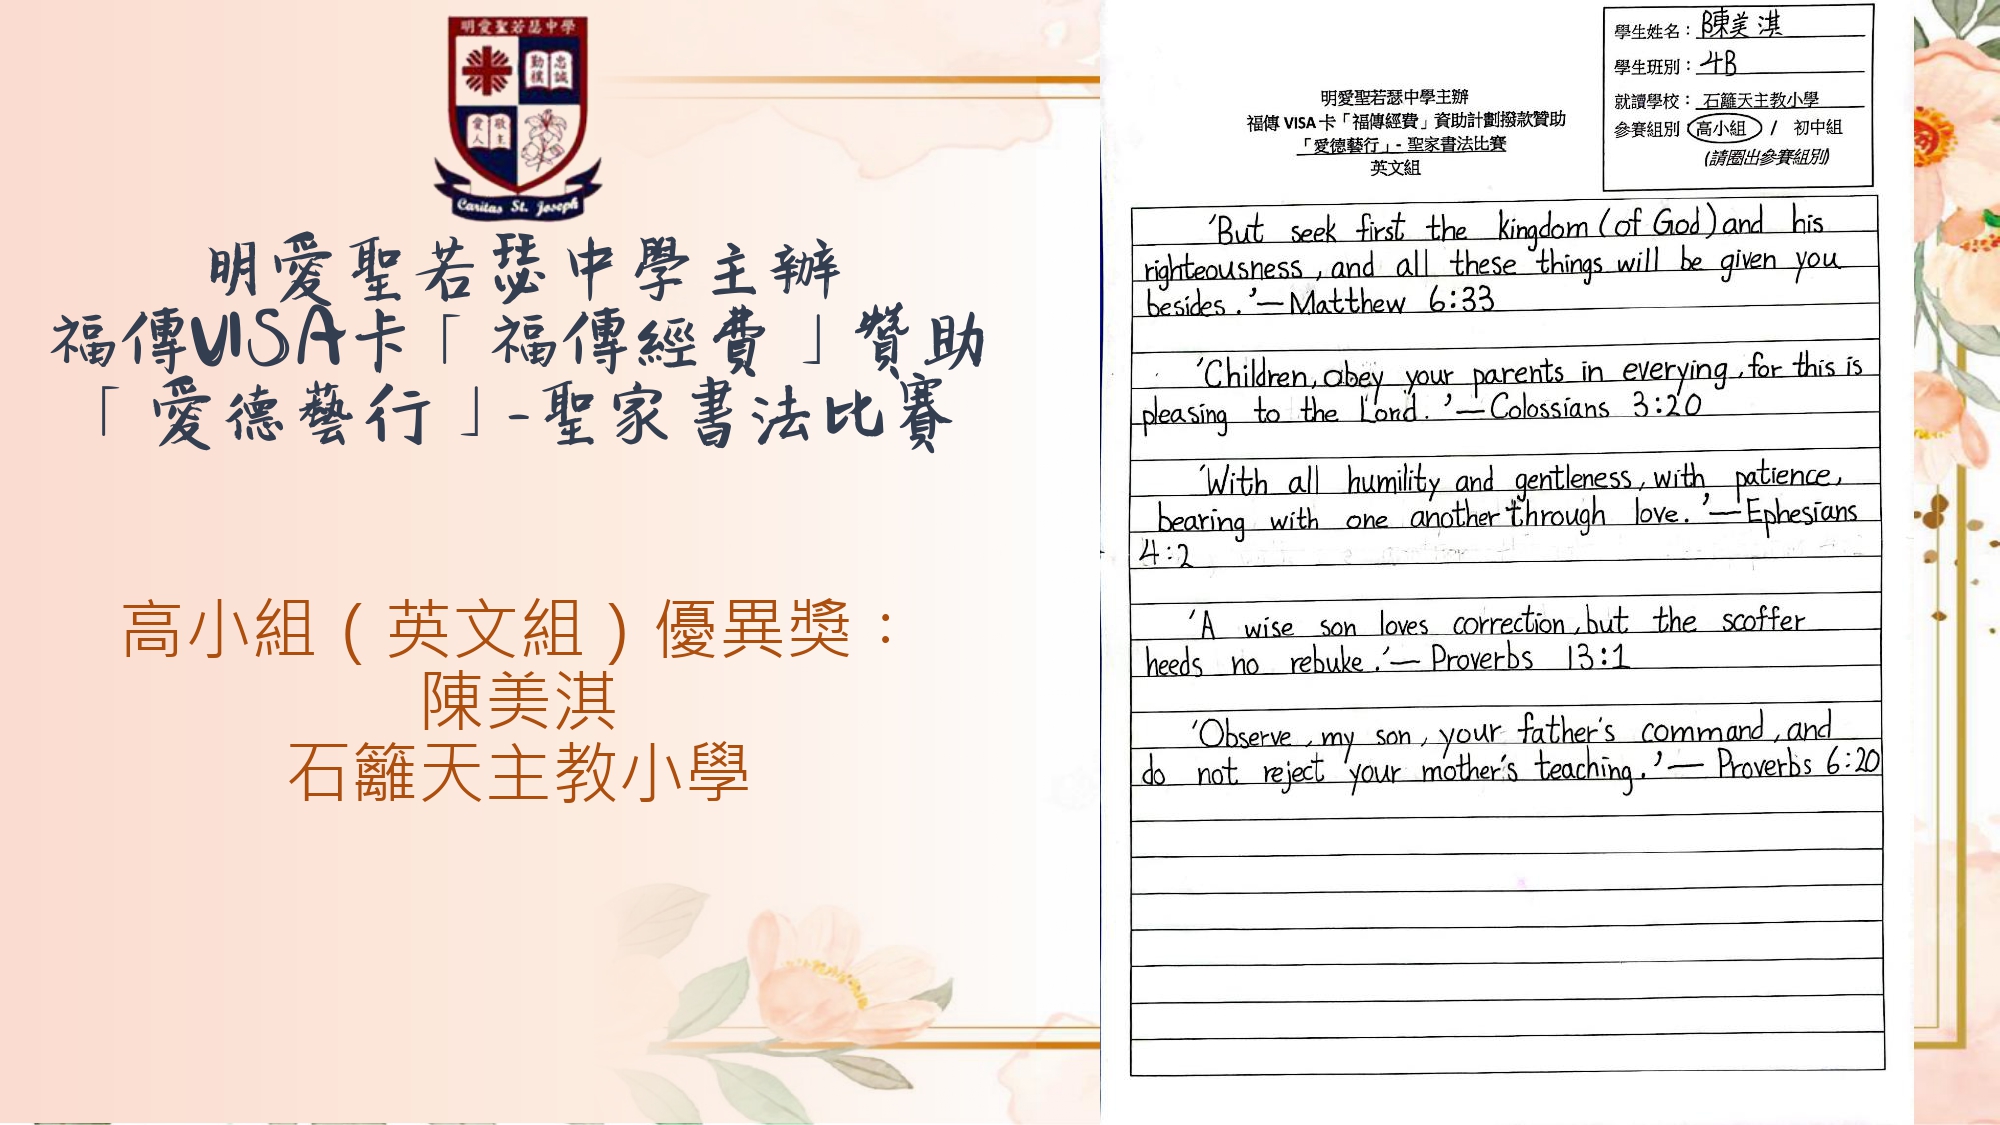 明愛聖若瑟中學
勤樸
忠誠
愛人
敬主
Caritas St. Joseph
明愛聖若瑟中學主辦
福傳VISA卡「福傳經費」贊助
「愛德藝行」-聖家書法比賽
高小組（英文組）優異獎：
陳美淇
石籬天主教小學
學生姓名：陳美淇
學生班別：4B
就讀學校：石籬天主教小學
參賽組別：高小組 / 初中組
(請圈出參賽組別)
明愛聖若瑟中學主辦
福傳 VISA 卡「福傳經費」資助計劃撥款贊助
「愛德藝行」- 聖家書法比賽
英文組
'But seek first the kingdom (of God) and his
righteousness, and all these things will be given you
besides.'—Matthew 6:33
'Children, obey your parents in everying, for this is
pleasing to the Lord.'—Colossians 3:20
'With all humility and gentleness, with patience,
bearing with one another through love.'—Ephesians
4:2
'A wise son loves correction, but the scoffer
heeds no rebuke.'—Proverbs 13:1
'Observe, my son, your father's command, and
do not reject your mother's teaching.'—Proverbs 6:20